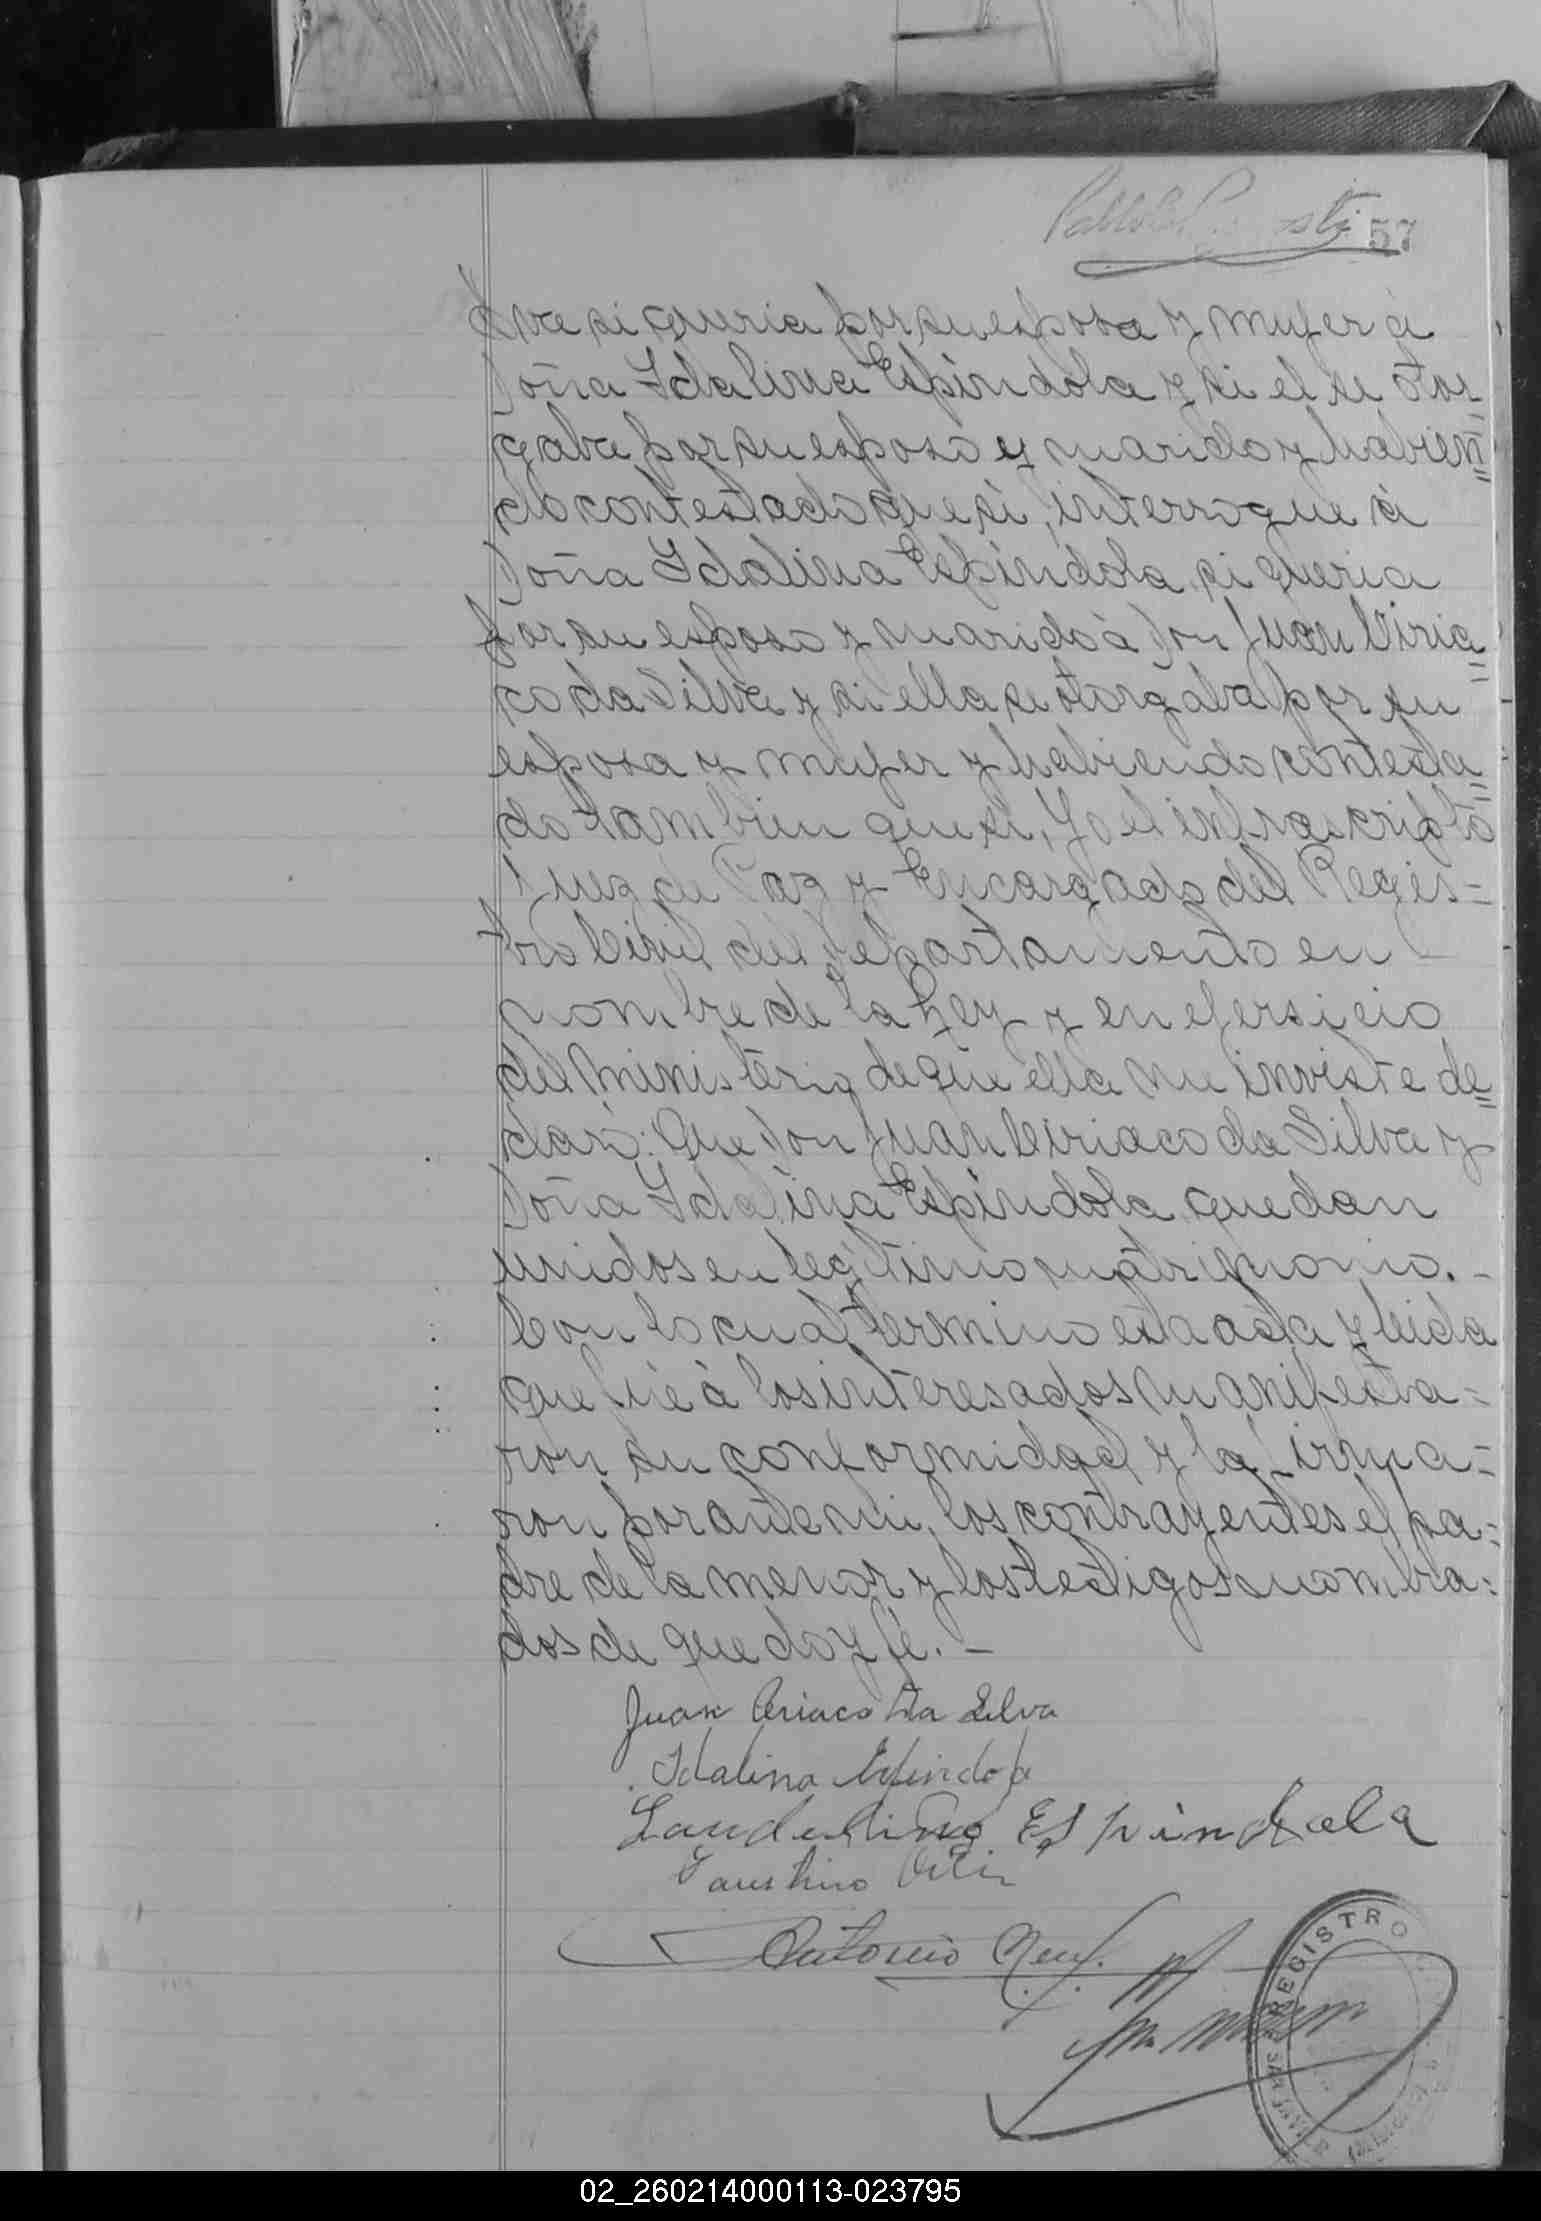 57
va si queria por su esposa y mujer á
Doña Idalina Espindola y si el se otor=
gaba por su esposo y marido y habien=
do contestado que si, interrogue á
Doña Idalina Espindola, si queria
por su esposo y marido á Don Juan Ciria=
co da Silva y si ella se otorgaba por su
esposa y mujer y habiendo contesta=
do tambien que si, Yo el infrascripto
Juez de Paz y Encargado del Regis=
tro Civil del Departamento en
nombre de la Ley y en ejersicio
del ministerio de que ella me inviste de=
claró: Que Don Juan Ciriaco da Silva y
Doña Idalina Espindola, quedan
unidos en legítimo matrimonio. -
Con lo cual termino esta acta y leida
que fué á los interesados manifesta=
ron su conformidad y la firma=
ron por ante mi, los contrayentes el pa=
dre de la menor y los testigos nombra=
dos de que doy fé. -
Juan Ciriaco Da Silva
Idalina Espindola
Laudelino Espindola
Faustino
Antonio
REGISTRO
SAN JAVIER
02_260214000113-023795